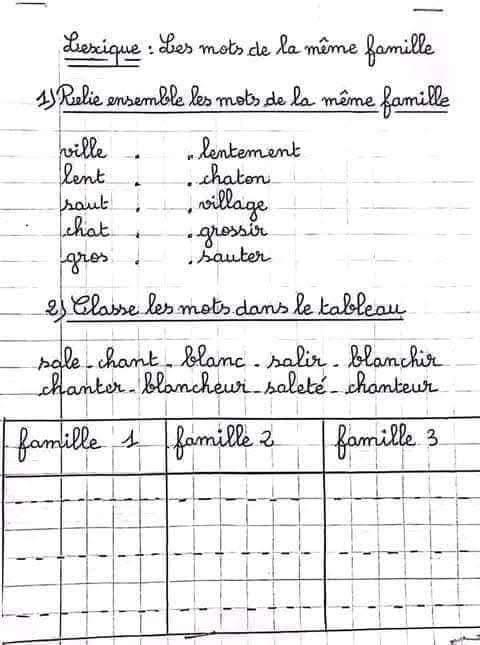 Lexique : Les mots de la même famille
1) Relie ensemble les mots de la même famille
ville . . lentement
lent . . chaton
saut . . village
chat . . grossir
gros . . sauter
2) Classe les mots dans le tableau
sale - chant - blanc - salir - blanchir
chanter - blancheur - saleté - chanteur
famille 1 famille 2 famille 3